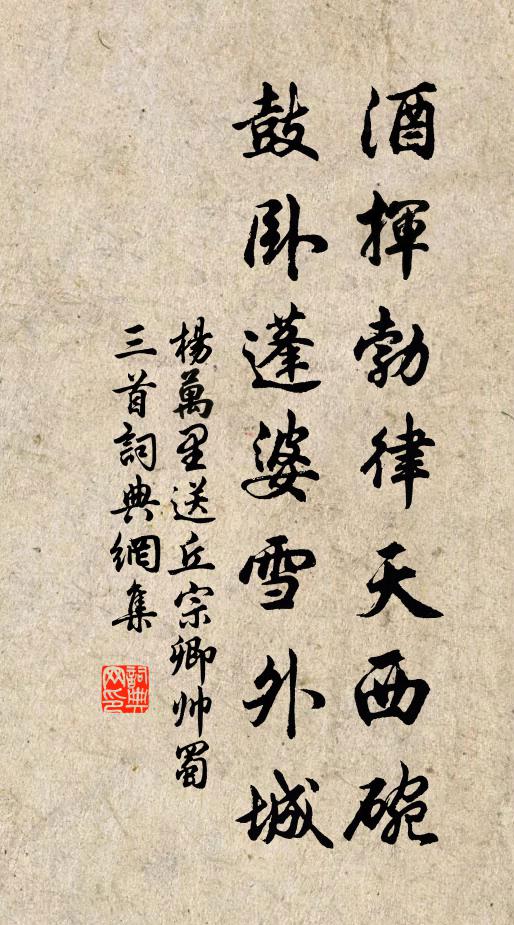 酒揮勃律天西碗
鼓卧蓬婆雪外城
楊萬里送丘宗卿帅蜀
三首詞典網集
詞典
网印